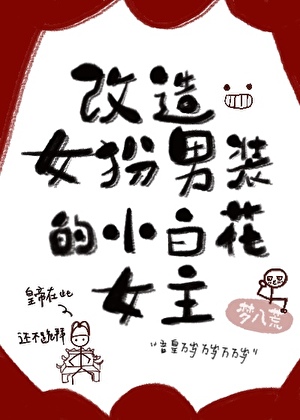 改造
女扮男装
的小白花
女主
皇帝在此
还不跪拜
梦八荒
"吾皇万岁万岁万万岁"